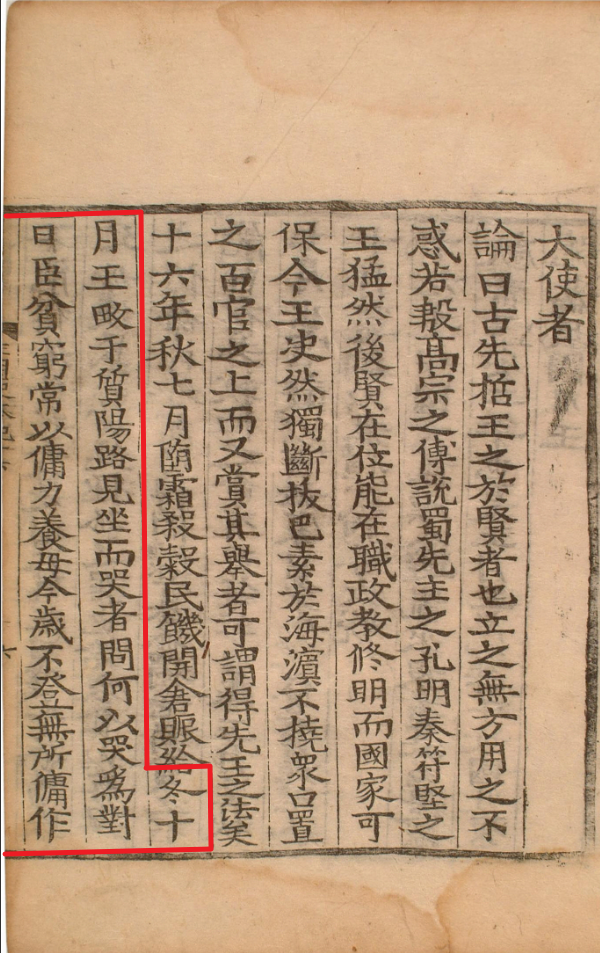 大使者
論曰古先哲王之於賢者也立之無方用之不
惑若殷髙宗之傅說蜀先主之孔明秦符堅之
王猛然後賢在位能在職政教修明而國家可
保今王决然獨斷拔巴素於海濵不撓衆口置
之百官之上而又賞其舉者可謂得先王之法矣
十六年秋七月墮霜殺穀民饑開倉賑給冬十
月王畋于質陽路見坐而哭者問何以哭爲對
曰臣貧窮常以傭力養母今歳不登無所傭作